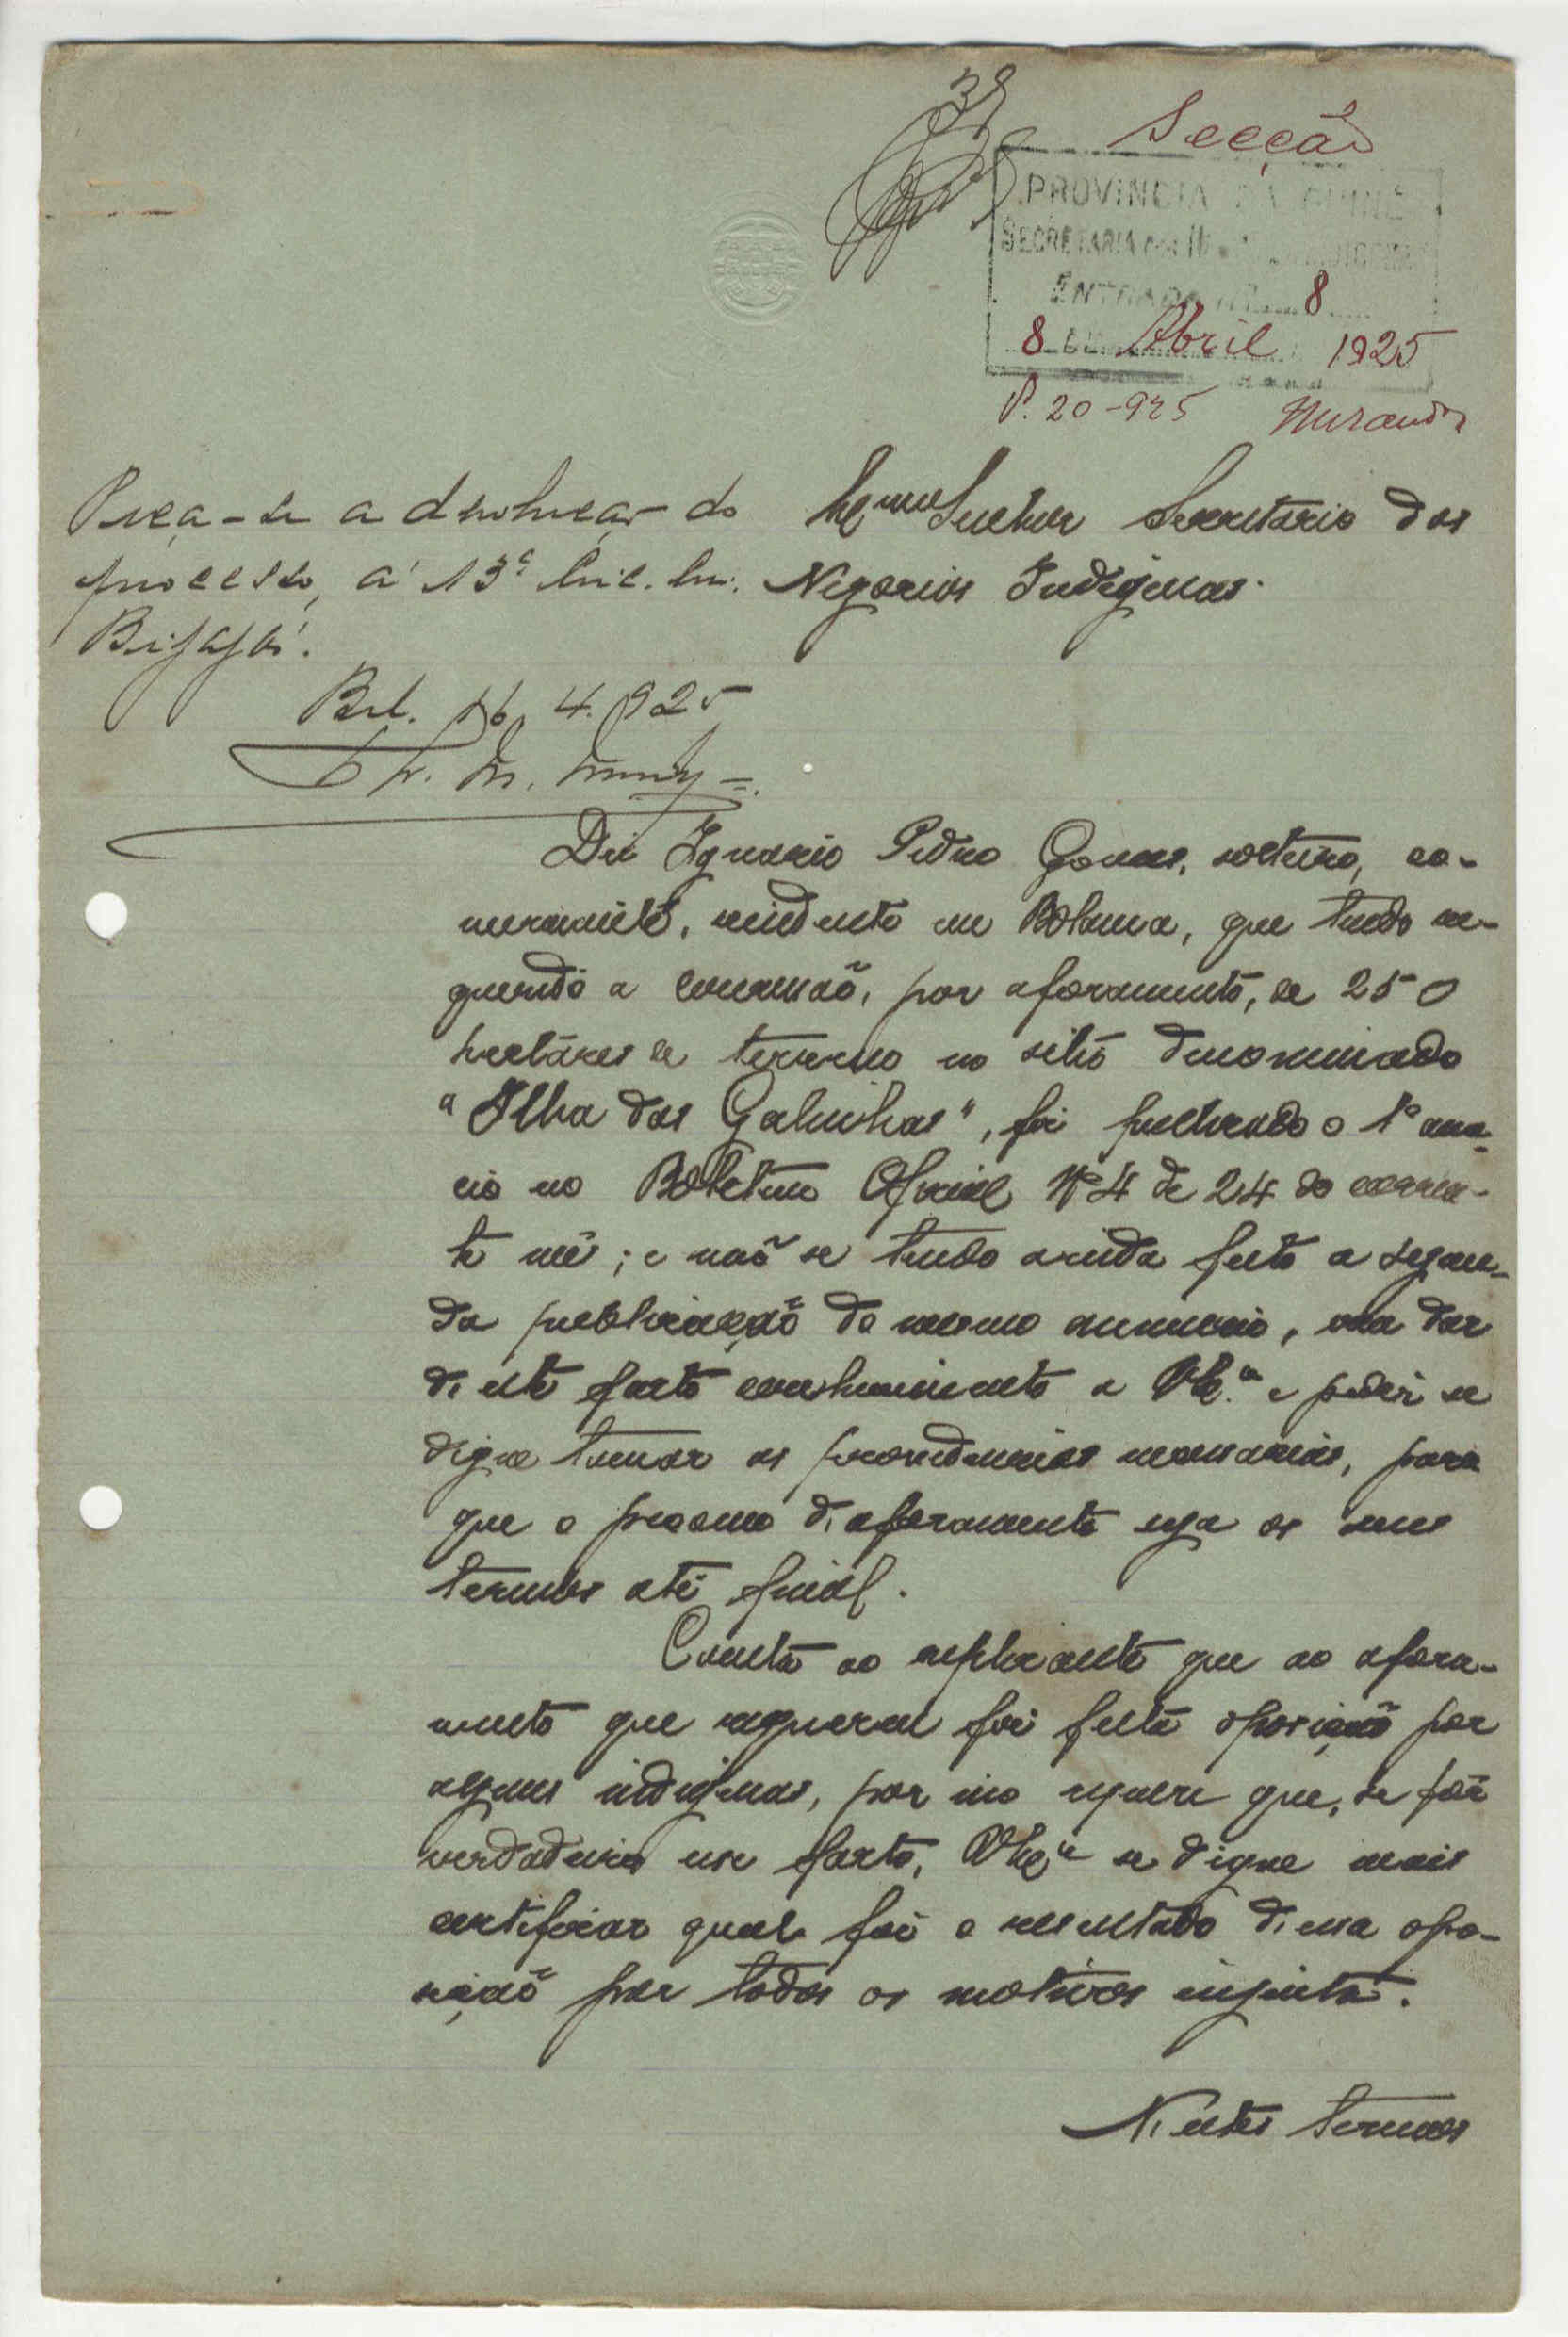 38
Secção
PROVINCIA DA GUINÉ
SECRETARIA DOS
ENTRADA Nº 8
8 DE Abril 1925
P. 20-925 Miranda
Peça-se a devolução do
processo, á 13ª
Bijagós.
Bol. 16, 4. 925
Exmo Senhor Secretario dos
Negocios Indigenas.
Diz Ignacio Pedro Gomes, solteiro, co-
merciante, residente em Bolama, que tendo re-
querido a concessão, por aforamento, de 250
hectáres de terreno no sitio denominado
"Ilha das Galinhas", foi publicado o 1º anun-
cio no Boletim Oficial Nº 4 de 24 do corren-
te mês; e não se tendo ainda feito a segun-
da publicação do mesmo anuncio, vem dar
d'este facto conhecimento a V. Exª e pedir se
digne tomar as providencias necessarias, para
que o processo d'aforamento siga os seus
termos até final.
Consta ao suplicante que ao afora-
mento que requereu foi feita oposição por
alguns indigenas, por isso requere que, se fôr
verdadeiro esse facto, V. Exª se digne mais
certificar qual foi o resultado d'essa opo-
sição por todos os motivos injusta.
N'estes termos